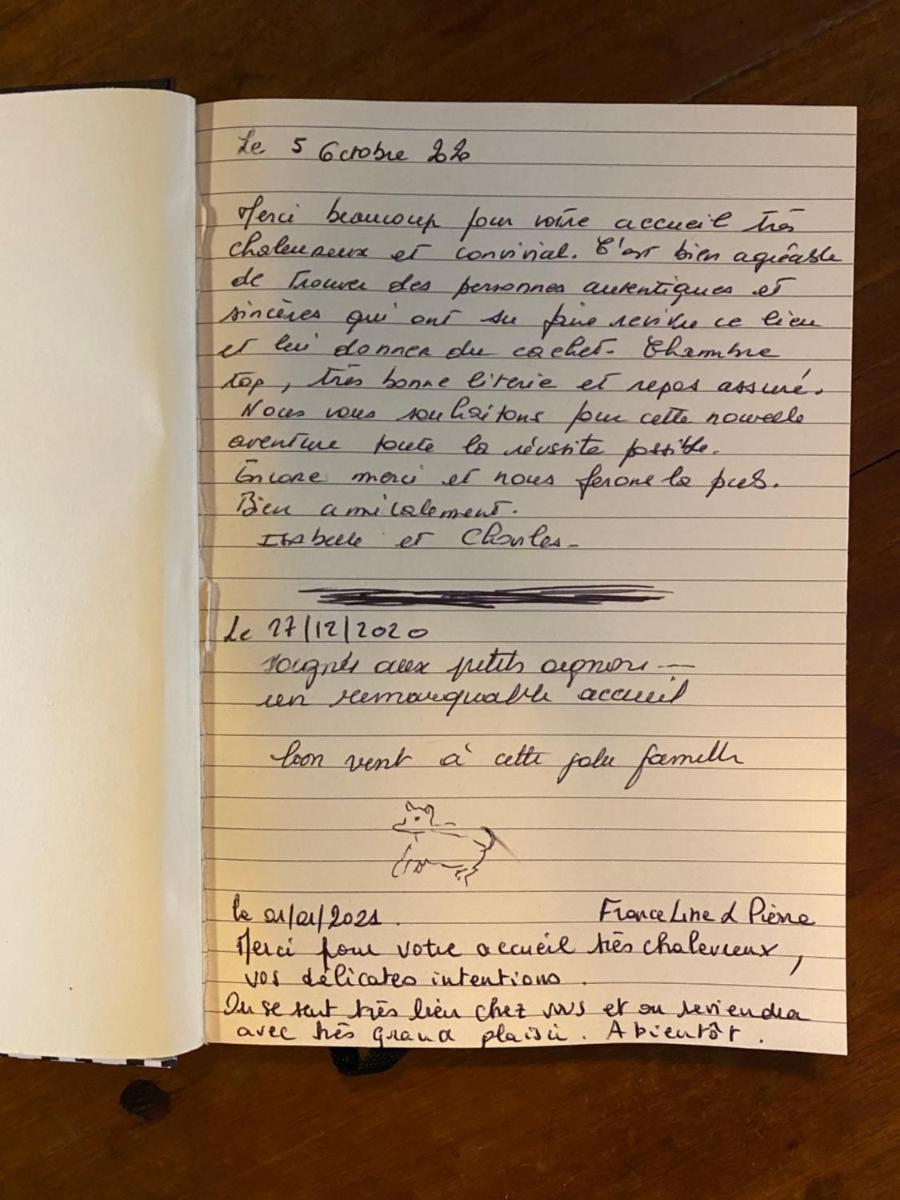 Le 5 Octobre 2020
Merci beaucoup pour votre accueil très
chaleureux et convivial. C'est bien agréable
de trouver des personnes autentiques et
sincères qui ont su faire revivre ce lieu
et lui donner du cachet. Chambre
top, très bonne literie et repos assuré.
Nous vous souhaitons pour cette nouvelle
aventure toute la réussite possible.
Encore merci et nous ferons la pub.
Bien amicalement.
Isabelle et Charles -
Le 27/12/2020
soignés aux petits oignons ---
un remarquable accueil
bon vent à cette jolie famille
le 01/01/2021. France Line & Pierre
Merci pour votre accueil très chaleureux,
vos délicates intentions.
On se sent très bien chez vous et on reviendra
avec très grand plaisir. A bientôt.